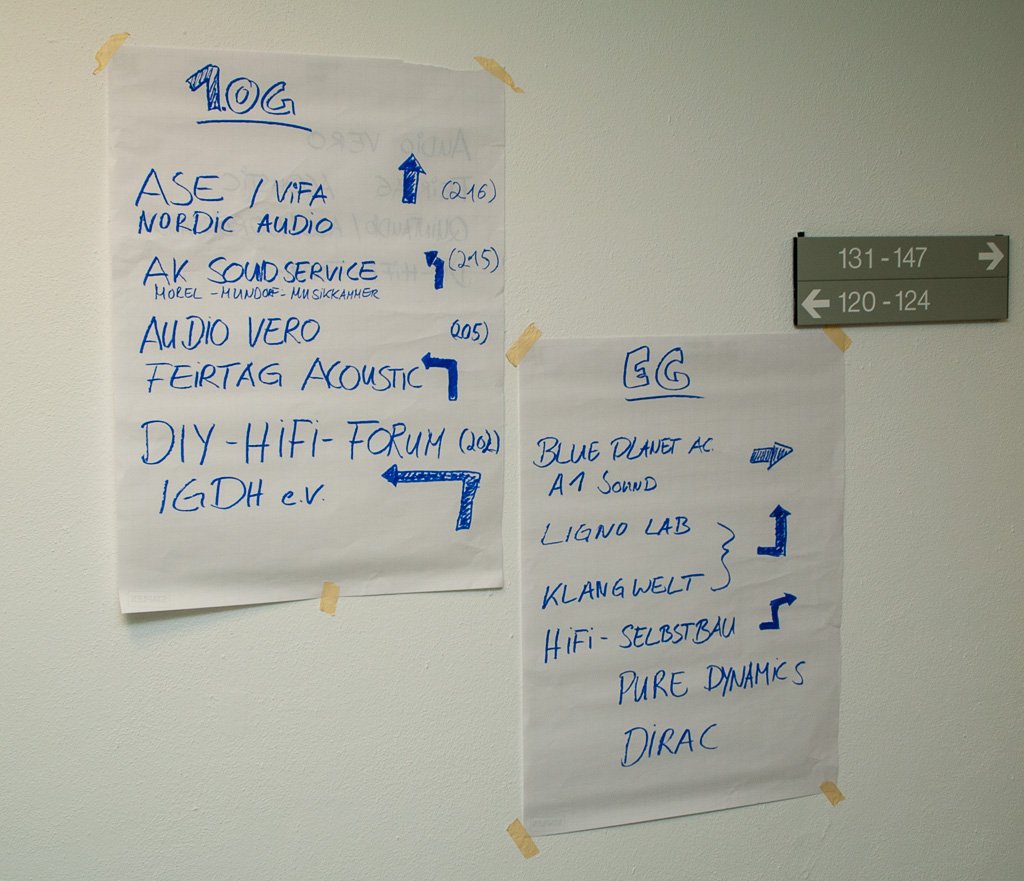 1.OG
ASE / ViFA (216)
NORDiC AUDiO
AK SOUNDSERVICE (215)
MOREL - MUNDORF - MUSIKKAMMER
AUDIO VERO (205)
FEiRTAG ACOUSTiC
DIY - HiFi - FORUM (202)
IGDH e.V.
131 - 147
120 - 124
EG
BLUE PLANET AC.
A1 SOUND
LIGNO LAB
KLANGWELT
HiFi - SELBSTBAU
PURE DYNAMiCS
DiRAC